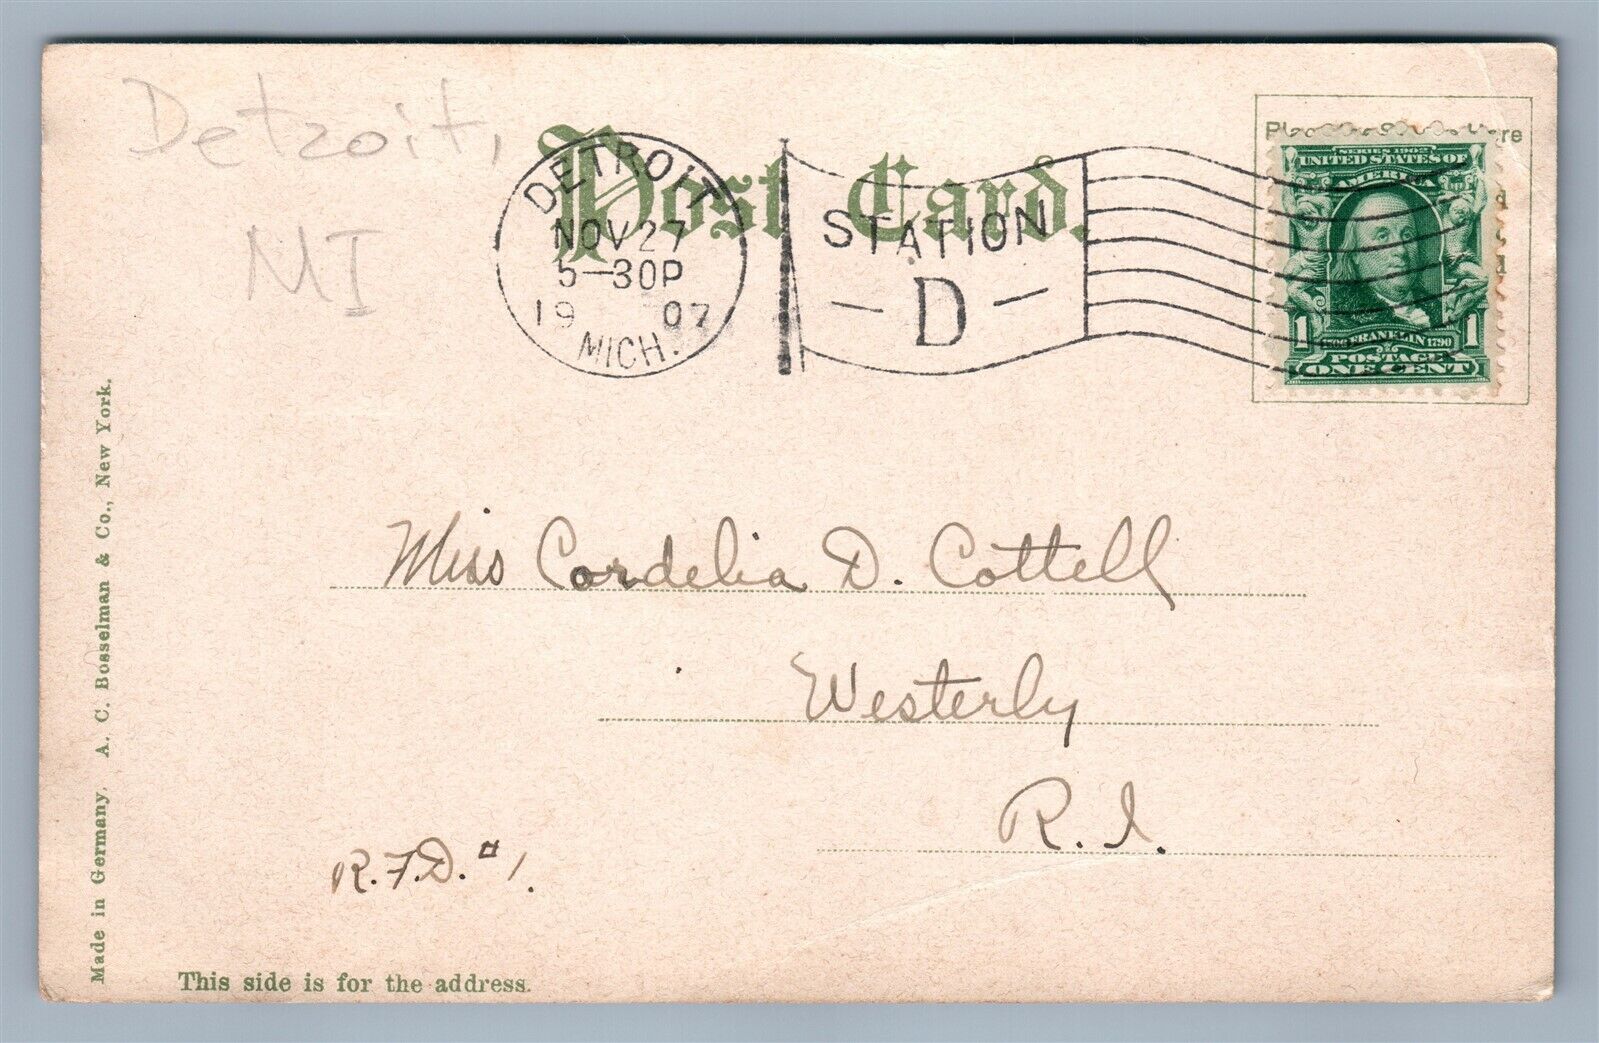 Detroit,
MI
Post Card.
DETROIT
NOV 27
5-30P
19 07
MICH.
STATION
- D -
SERIES 1902
UNITED STATES OF
AMERICA
1 FRANKLIN 1790 1
POSTAGE
ONE CENT
Miss Cordelia D. Cottell
Westerly
R. I.
R.F.D. #1.
This side is for the address.
Made in Germany. A. C. Bosselman & Co., New York.